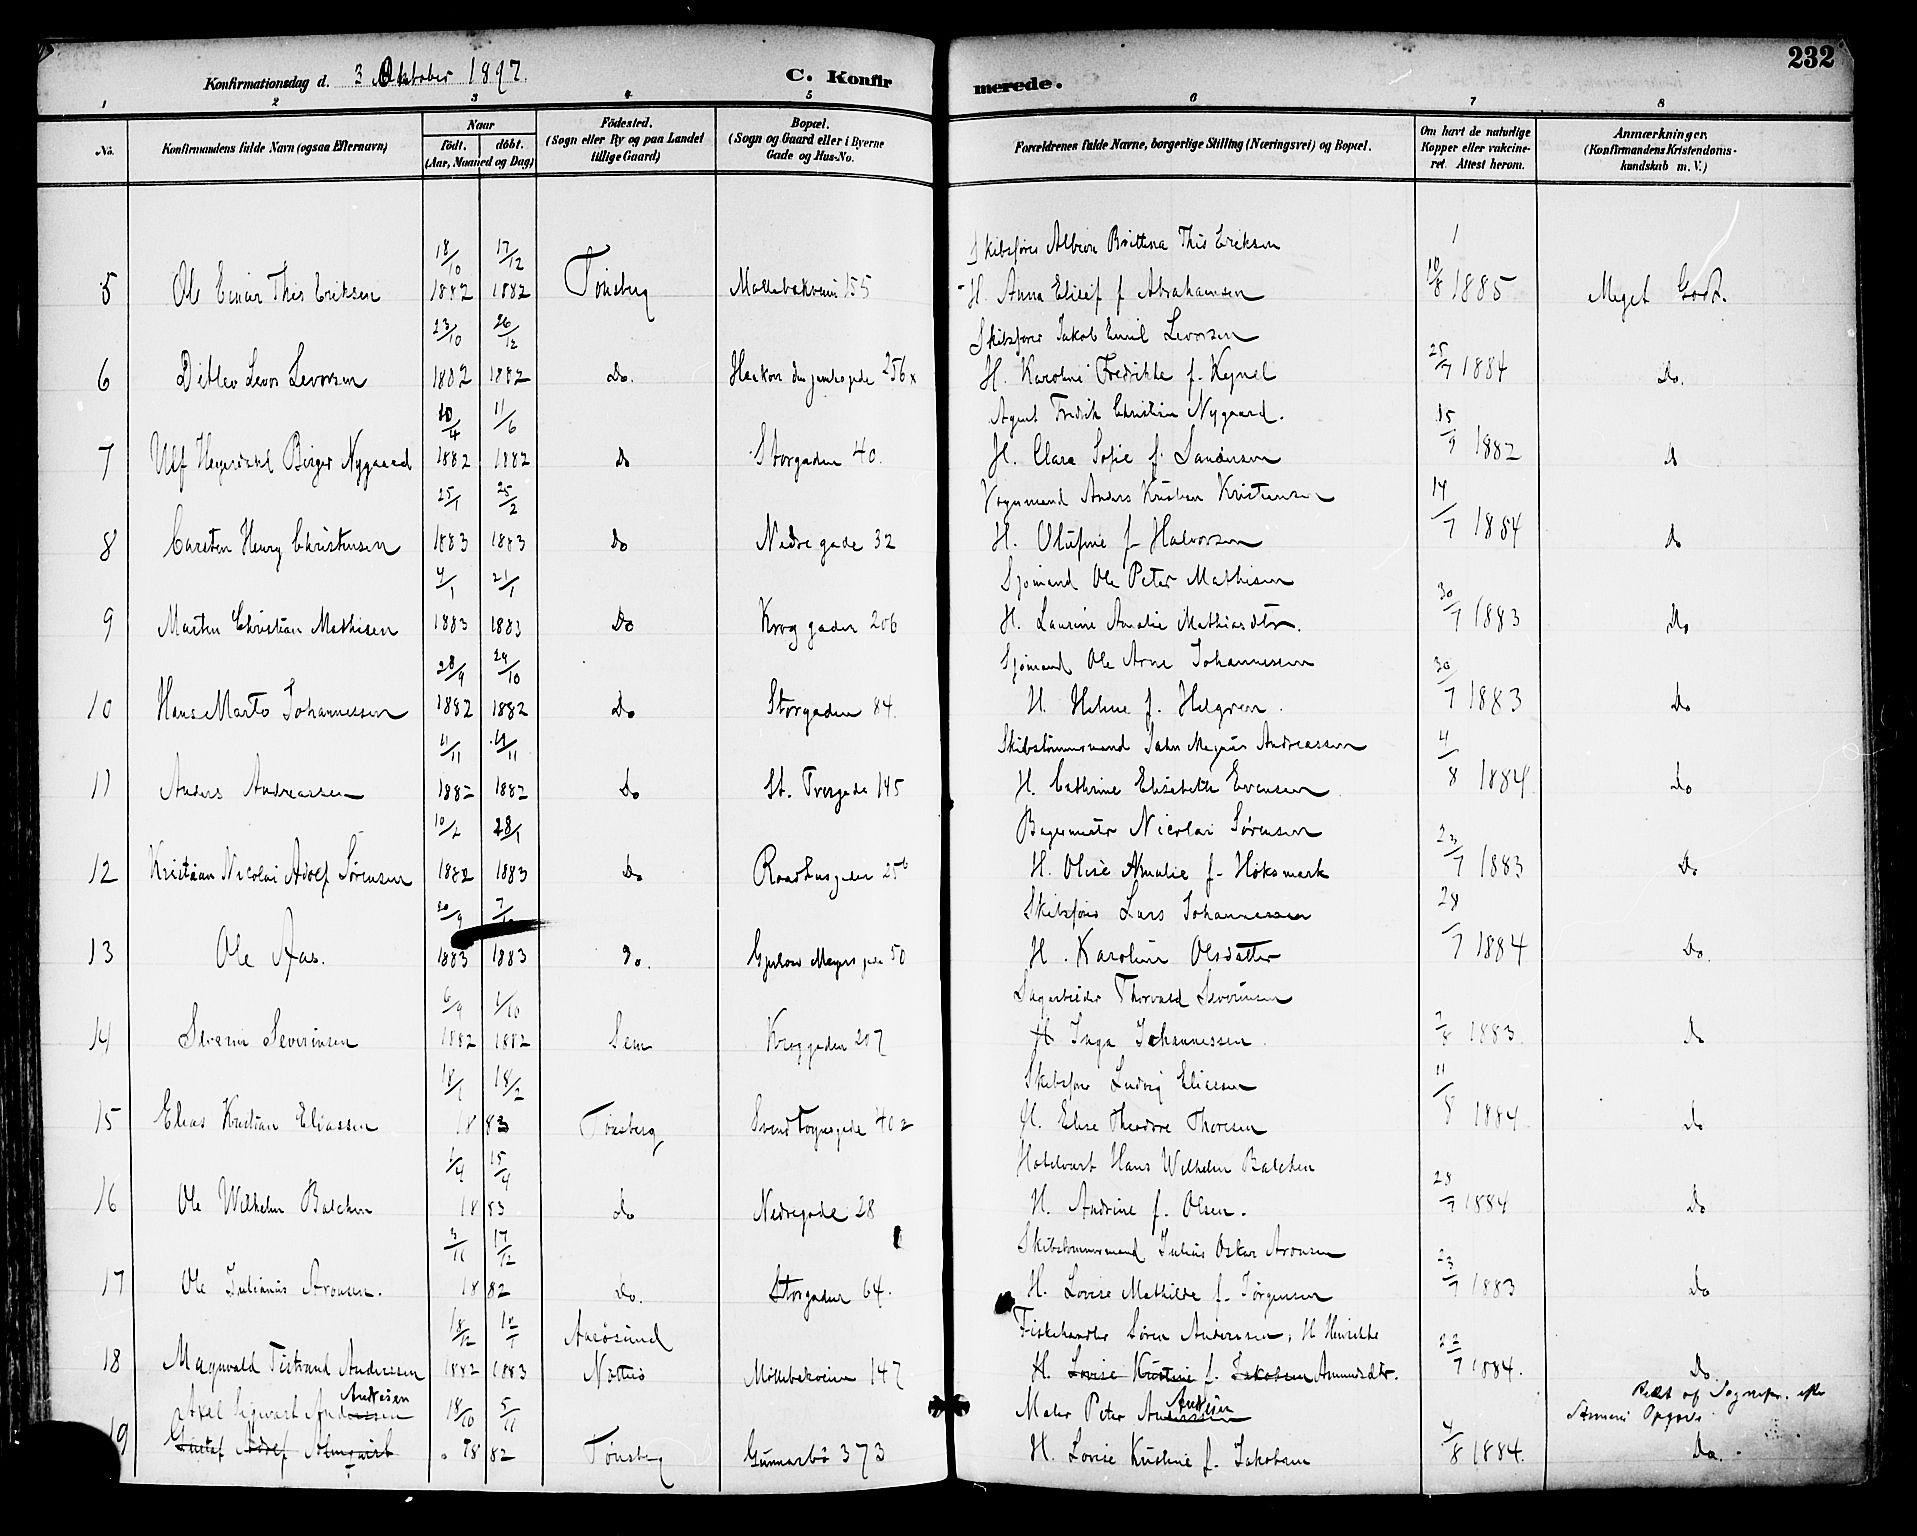 232
Konfirmationsdag d. 3 Oktober 1897.
C. Konfirmerede.
1 2 3 4 5 6 7 8
No.
Konfirmandens fulde Navn (ogsaa Efternavn)
Naar
født. døbt.
(Aar, Maaned og Dag)
Födested.
(Sogn eller By og paa Landet
tillige Gaard)
Bopæl.
(Sogn og Gaard eller i Byerne
Gade og Hus-No.
Forældrenes fulde Navne, borgerlige Stilling (Næringsvei) og Bopæl.
Om havt de naturlige
Kopper eller vakcine-
ret. Attest herom.
Anmærkninger.
(Konfirmandens Kristendoms-
kundskab m. V.)
18/10 17/12 Skibsfører Albion Brittna This Eriksen
5 Ole Einar This Eriksen 1882 1882 Tönsberg Möllebakveien 155 H. Anna Elisef f Abrahamsen 10/8 1885 Meget Godt.
23/10 26/12 Skibsfører Jakob Emil Levorsen
6 Ditlev Levor Levorsen 1882 1882 Do. Haakon den gamles gade 256 x H. Karoline Fredrikke f. 25/7 1884 Do.
10/4 11/6 Agent Fredrik Christian Nygaard.
7 Ulf Heyerdahl Birger Nygaard 1882 1882 Do Storgaden 40. H. Clara Sofie f. Sandersen 15/9 1882 Do
25/1 25/2 Vognmand Anders Kristian Kristiansen
8 Carsten Henry Christensen 1883 1883 Do Nedre gade 32 H. Olufine f Halvorsen 14/7 1884 Do
4/1 21/1 Sjömand Ole Peter Mathisen
9 Martin Christian Mathisen 1883 1883 Do Kroggaden 206 H. Laurine Amalie Mathiasdtr. 30/7 1883 Do
28/9 29/10 Sjömand Ole Arne Johannessen
10 Hans Marto Johannessen 1882 1882 Do Storgaden 84. H. Helene f. Helgren. 30/7 1883 Do
Skibstömmermand John Magnus Andreassen
11 Anders Andreassen 1882 1882 Do St. Tversgade 145 H. Cathrine Elisabeth Evensen 4/8 1884 Do
10/2 28/1 Bagermester Nicolai Sörensen
12 Kristian Nicolai Adolf Sörensen 1882 1883 Do Raadhusgaden 256 H. Olise Amalie f. Höksmark 23/7 1883 Do
20/9 Skibsförer Lars Johannessen
13 Ole Aas. 1883 1883 Do. Gjerlow Meyers gade 50 H. Karoline Olsdatter 28/7 1884 Do.
6/9 1/10 Sagarbeider Thorvald Severinsen
14 Severin Severinsen 1882 1882 Sem Kroggaden 207 H Inga Johannessen. 7/8 1883 Do
18/1 18/2 Skibsförer Ludvig Eliassen
15 Elias Kristian Eliassen 1883 Tönsberg Svend Foynsgade 402 H. Elise Theodore Thoresen 11/8 1884 Do
1/4 15/4 Hotelvært Hans Wilhelm Balchen
16 Ole Wilhelm Balchen 1883 do Nedregade 28 H. Andrine f. Olsen. 28/7 1884 Do
3/11 17/12 Skibstömmermand Julius Oskar Aronsen
17 Ole Julianus Aronsen. 1882 Do. Storgaden 64. H. Lovise Mathilde f. Jörgensen 23/7 1883 Do
18/12 Aarösund Fiskehandler Sören Andersen, H Henrikke
18 Magnvald Tistrand Anderssen 1882 1883 Nötterö Möllebakveien 147 H. Lovise Kristine f. Jakobsen Ammundsdtr. 22/7 1884. Do
Andresen Andresen Rettet af Sognepr. efter
Axel Sigwart Anderssen 18/10 5/11 Maler Peter Anderssen Opgave
19 Gustaf Adolf Almqvist 1882 Tönsberg Gunnarbö 373 H. Lovise Kristine f. Jakobsen 4/8 1884. Do.